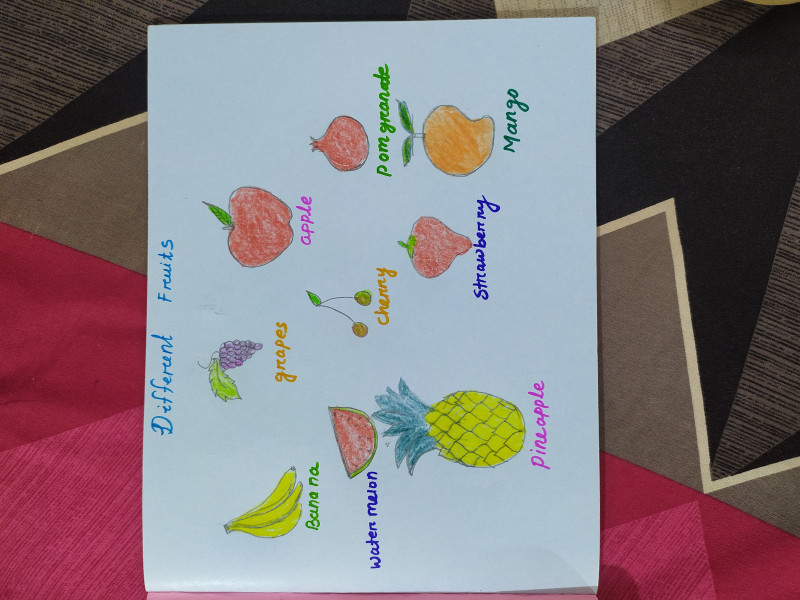 Different Fruits
Banana
grapes
apple
water melon
cherry
Pomgranate
Pineapple
Strawberry
Mango